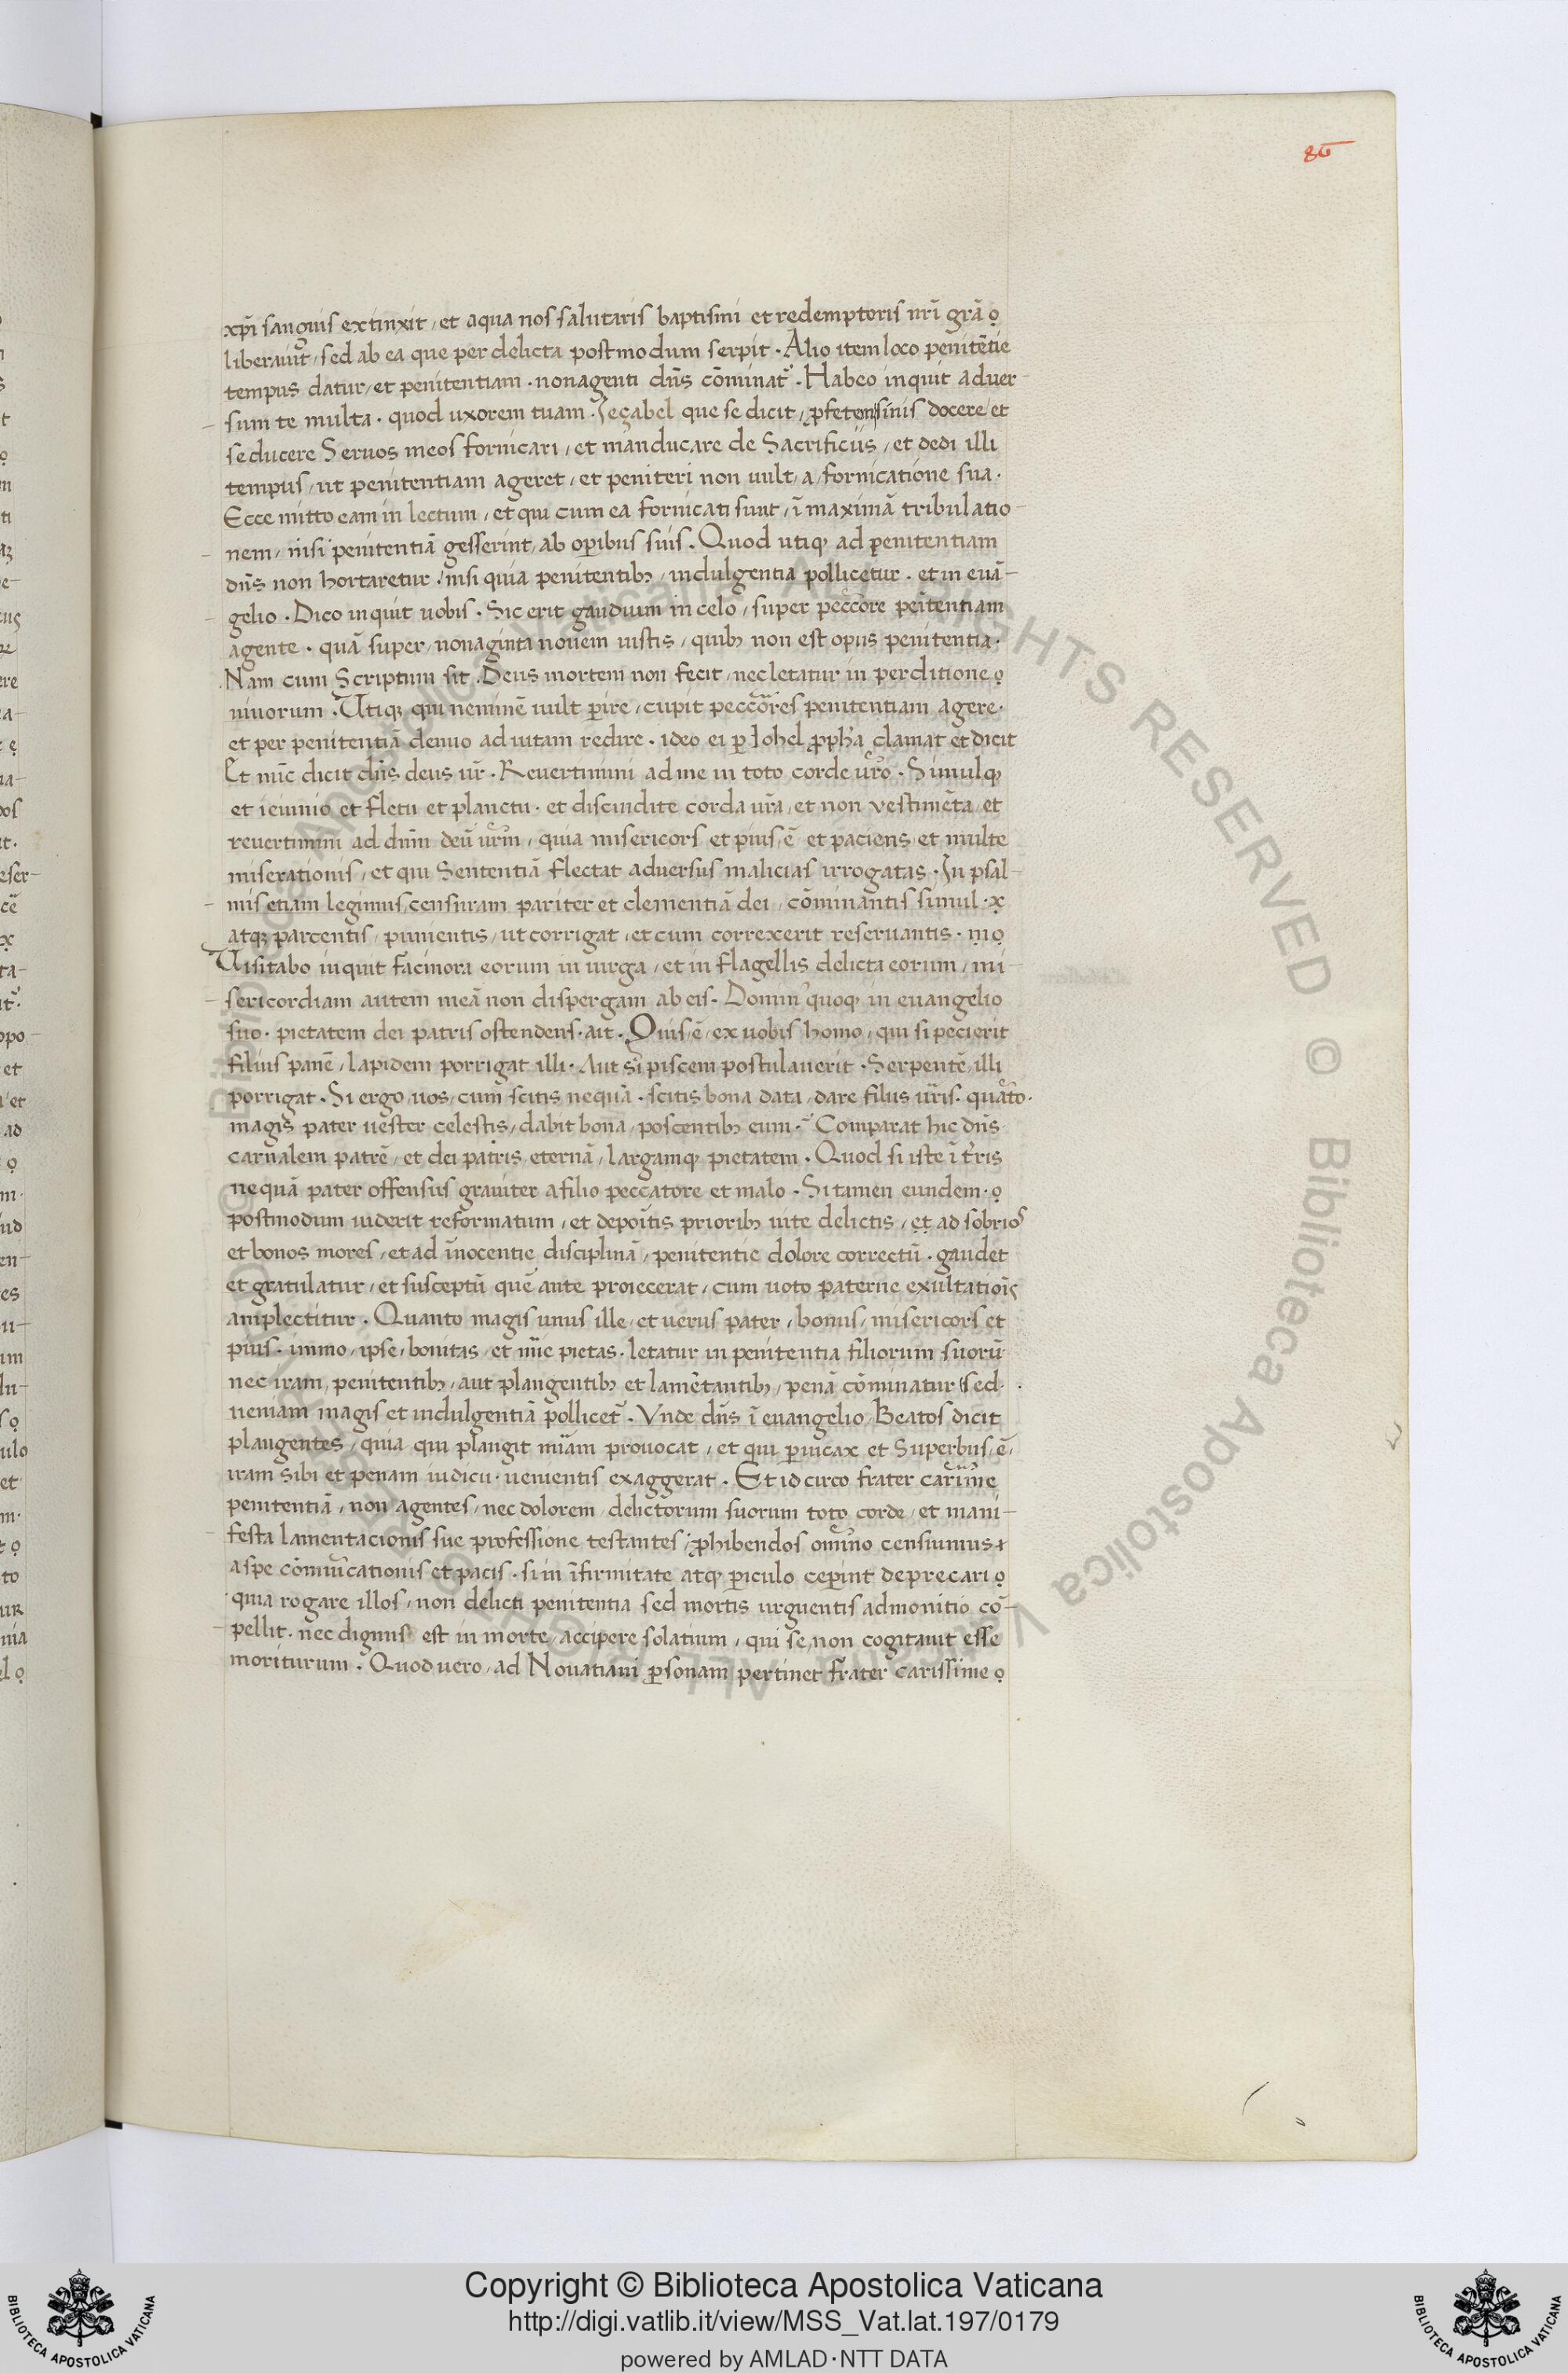 86
xp̄i sanguis extinxit / et aqua nos salutaris baptismi et redemptoris nr̄i gr̄a
liberauit / sed ab ea que per delicta postmodum serpit . Alio item loco penitētie
tempus datur / et penitentiam . non agenti dn̄s cōminat᷑ . Habeo inquit aduer-
sum te multa . quod uxorem tuam . Jeçabel que se dicit / ꝓfeten sinis docere et
seducere Seruos meos fornicari / et manducare de Sacrificiis / et dedi illi
tempus / ut penitentiam ageret / et peniteri non uult / a fornicatione sua .
Ecce mitto eam in lectum / et qui cum ea fornicati sunt / ī maximā tribulatio-
nem / nisi penitentiā gesserint / ab oꝑibus suis . Quod utiqꝫ ad penitentiam
dn̄s non hortaretur / nisi quia penitentibꝫ / indulgentia pollicetur . et in euā-
gelio . Dico inquit uobis . Sic erit gaudium in celo / super peccōre penitentiam
agente . quā super / nonaginta nouem iustis / quibꝫ non est opus penitentia .
Nam cum Scriptum sit . Deus mortem non fecit / nec letatur in perditione
uiuorum . Utiqꝫ qui neminē uult ꝑire / cupit peccōres penitentiam agere .
et per penitentiā denuo ad uitam redire . ideo ei ꝑ Johel ꝓph̄a clamat et dicit
Et nūc dicit dn̄s deus ur̄ . Reuertimini ad me in toto corde ur̄o . Simulqꝫ
et ieiunio et fletu et planctu . et discindite corda ur̄a / et non vestimēta / et
reuertimini ad dn̄m deū ur̄m / quia misericors et pius ē et paciens et multe
miserationis / et qui Sententiā flectat aduersus malicias irrogatas . In psal-
mis etiam legimus / censuram pariter et clementiā dei / cōminantis simul . x
atqꝫ parcentis / punientis / ut corrigat / et cum correxerit reseruantis . mo
Uisitabo inquit facinora eorum in uirga / et in flagellis delicta eorum / mi-
sericordiam autem meā non dispergam ab eis . Domin᷒ quoqꝫ in euangelio
suo . pietatem dei patris ostendens . ait . Quis ē / ex uobis homo / qui si pecierit
filius panē / lapidem porrigat illi . Aut si piscem postulauerit . Serpentē illi
porrigat . Si ergo uos / cum scitis nequā . scitis bona data / dare filiis ur̄is . quāto .
magis pater uester celestis / dabit bona / poscentibꝫ eum . Comparat hic dn̄s
carnalem patrē / et dei patris eternā / largamqꝫ pietatem . Quod si iste ī t̄ris
nequā pater offensus grauiter a filio peccatore et malo . Si tamen eundem .
postmodum uiderit reformatum / et depoītis prioribꝫ uite delictis / et ad sobrios
et bonos mores / et ad īnocentie disciplinā / penitentie dolore correctū . gaudet
et gratulatur / et susceptū quē ante proiecerat / cum uoto paterne exultatiōis
amplectitur . Quanto magis unus ille / et uerus pater / bonus / misericors et
pius . immo / ipse / bonitas / et m̄ie pietas . letatur in penitentia filiorum suorū
nec iram / penitentibꝫ / aut plangentibꝫ et lamētantibꝫ / penā cōminatur / sed .
ueniam magis et indulgentiā pollicet᷑ . Vnde dn̄s ī euangelio / Beatos dicit
plangentes / quia qui plangit m̄iam prouocat / et qui ꝑuicax et Superbus / ē /
iram sibi et penam iudicii . uenientis exaggerat . Et idcirco frater car̄ime
penitentiā / non agentes / nec dolorem / delictorum suorum toto corde / et mani-
festa lamentacionis sue professione testantes / ꝓhibendos om̄ino censuimus
a spe cōmūicationis et pacis . si in īfirmitate atqꝫ ꝑiculo ceꝑint deprecari
quia rogare illos / non delicti penitentia sed mortis urguentis admonitio cō-
pellit . nec dignus est in morte / accipere solatium / qui se / non cogitauit esse
moriturum . Quod uero / ad Nouatiani ꝑsonam pertinet frater carissime
Copyright © Biblioteca Apostolica Vaticana
http://digi.vatlib.it/view/MSS_Vat.lat.197/0179
powered by AMLAD·NTT DATA